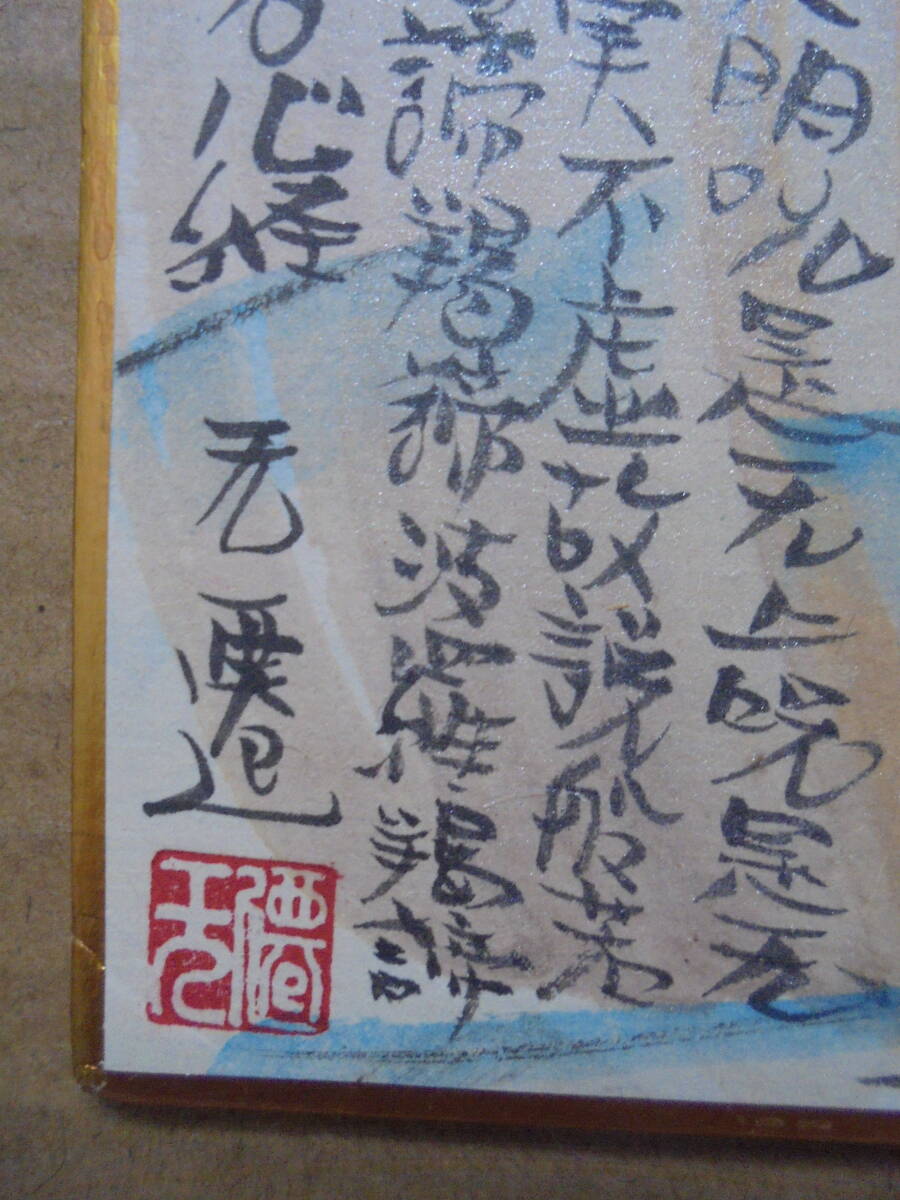 大明呪是无上呪是无
実不虚故説般若
諦羯諦波羅羯諦
若心経　无遷
无僊